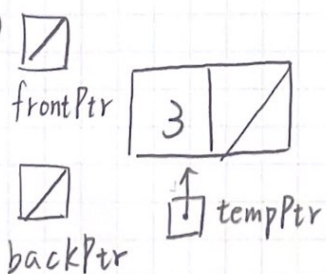 )
frontPtr
3
tempPtr
backPtr